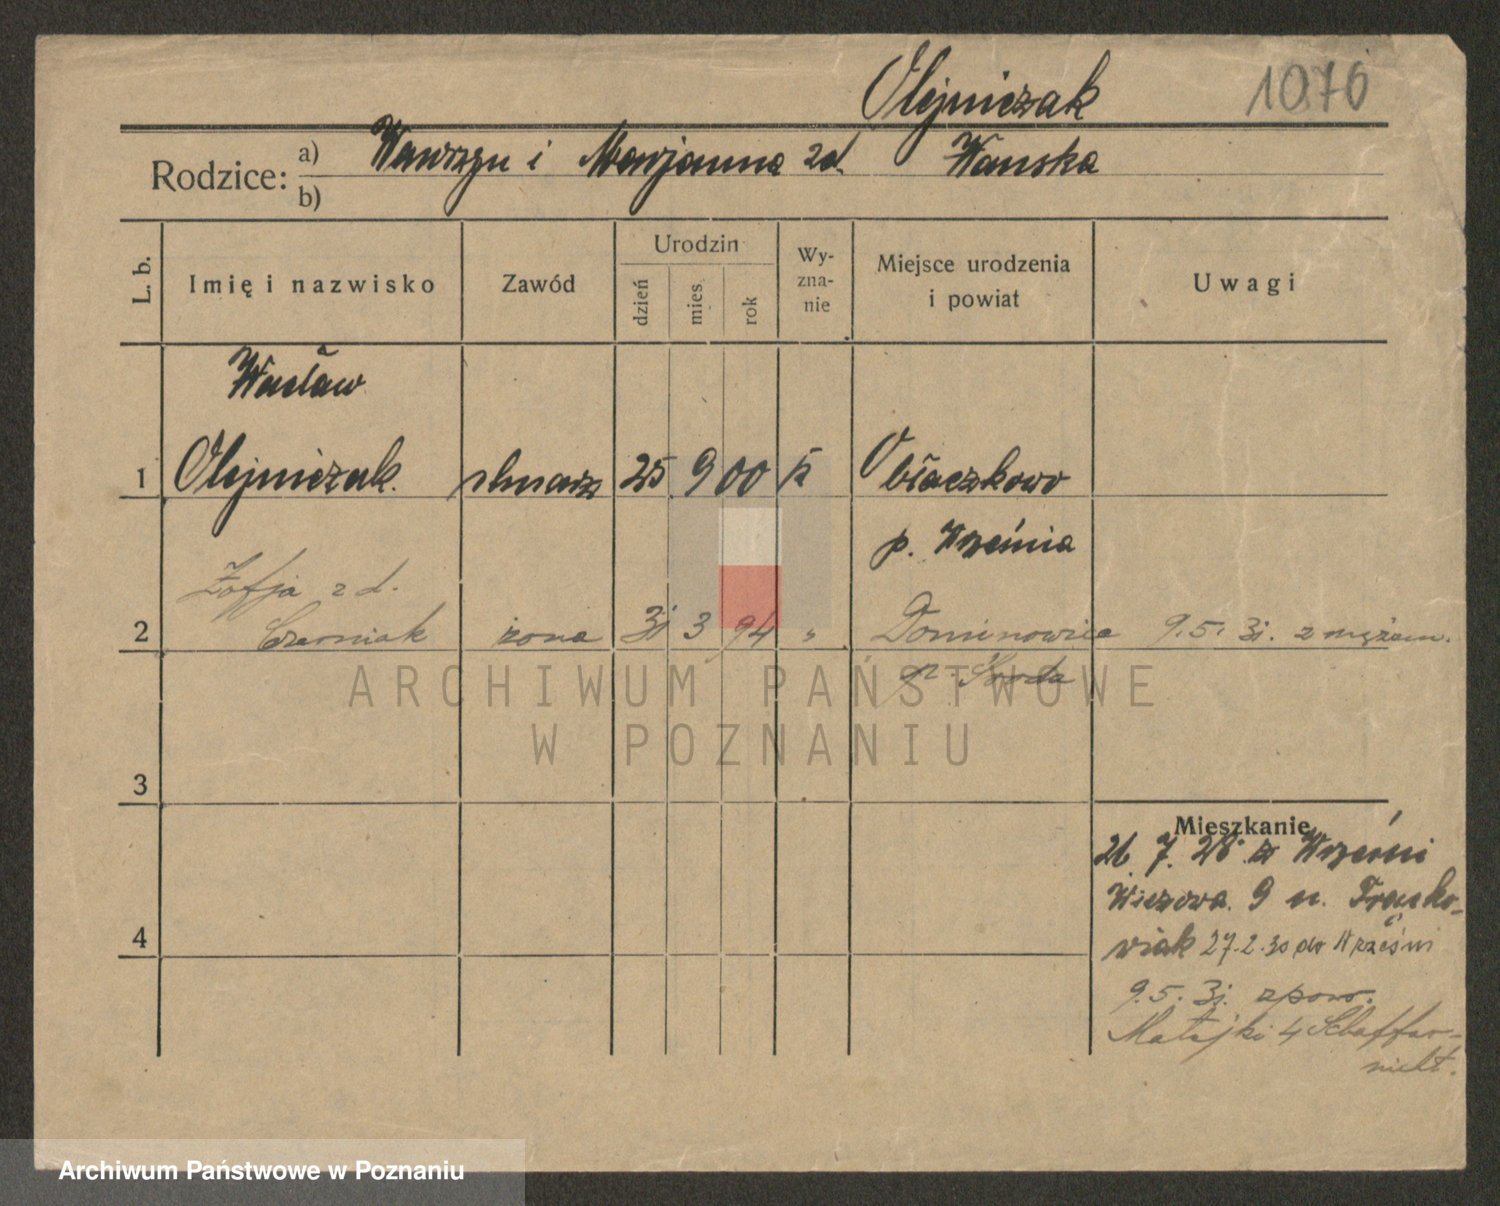 Olejniczak
1076
Rodzice: a) Wawrzyn i Marjanna zd. Wanska
b)
L. b.
Imię i nazwisko
Zawód
Urodzin
dzień
mies.
rok
Wy-
zna-
nie
Miejsce urodzenia
i powiat
Uwagi
Wacław
1 Olejniczak. 25 9 00 k Obłaczkowo
p. Września
Zofja z d.
2 Czerniak żona 31 3 94 " Dominowice 9.5.31. z mężem.
p. Środa
3
4
Mieszkanie
26. 7. 28 z Wrześni
9 u. Frącko-
wiak 27.2.30 do Wrześni
9.5.31. zpow.
Matejki 4 Schaffar-
nicht.
ARCHIWUM PAŃSTWOWE
W POZNANIU
Archiwum Państwowe w Poznaniu